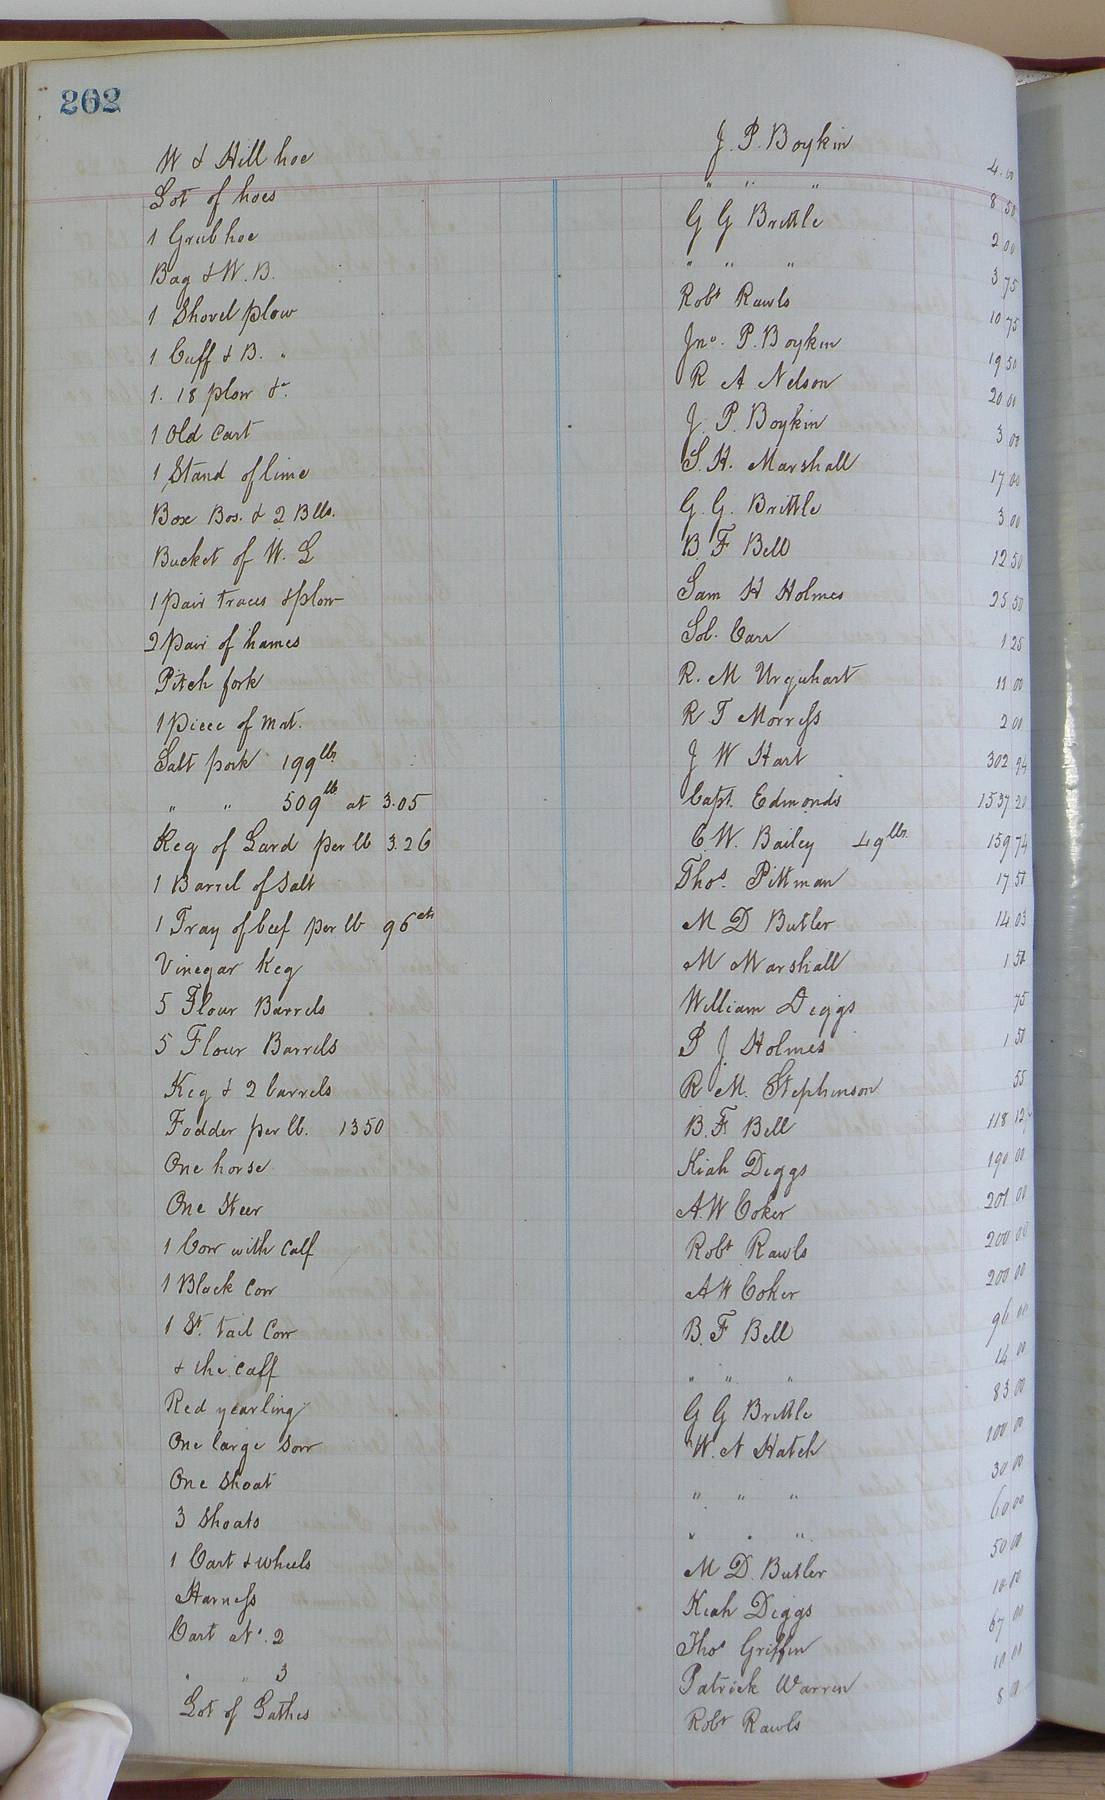 202
W & Hill hoe J. P. Boykin 4.00
Lot of hoes " " " 8 50
1 Grub hoe G G Brittle 2 00
Bag & W. B. " " " 3 75
1 Shovel plow Robt Rawls 10 75
1 Cuff & B. " Jno. P. Boykin 19 50
1. 18 plow &c. R A Nelson 20 00
1 Old cart J. P. Boykin 3 00
1 Stand of lime S. H. Marshall 17 00
Box Bos. & 2 Blls. G. G. Brittle 3 00
Bucket of W. L B. F Bell 12 50
1 pair traces & plow Sam H Holmes 25 50
2 pair of hames Sol. Carr 1 25
Pitch fork R. M Urquhart 11 00
1 piece of mat. R T Morriss 2 00
Salt pork 199 lbs J W Hart 302 94
" " 509 lb at 3.05 Capt. Edmonds 1537 20
Keg of Lard per lb 3.26 C. W. Bailey 49 lbs. 159 74
1 Barrel of Salt Thos. Pittman 17 50
1 Tray of beef per lb 96 cts M D Butler 14 03
Vinegar Keg M Marshall 1 50
5 Flour Barrels William Diggs 75
5 Flour Barrels P J. Holmes 1 50
Keg & 2 barrels R M. Stephenson 55
Fodder per lb. 1350 B. F. Bell 118 12
One horse Kiah Diggs 190 00
One Steer A. W Coker 201 00
1 Cow with calf Robt Rawls 200 00
1 Black cow A W Coker 200 00
1 St. tail Cow B. F Bell 96 00
& the calf " " " 14 00
Red yearling G G Brittle 83 00
One large Sow W. N Hatch 100 00
One Shoat " " " 30 00
3 Shoats " " " 60 00
1 Cart & wheels M D. Butler 50 00
Harness Kiah Diggs 10 00
Cart at. 2 Thos Griffin 67 00
" " 3 Patrick Warren 10 00
Lot of Lathes Robt Rawls 8 00